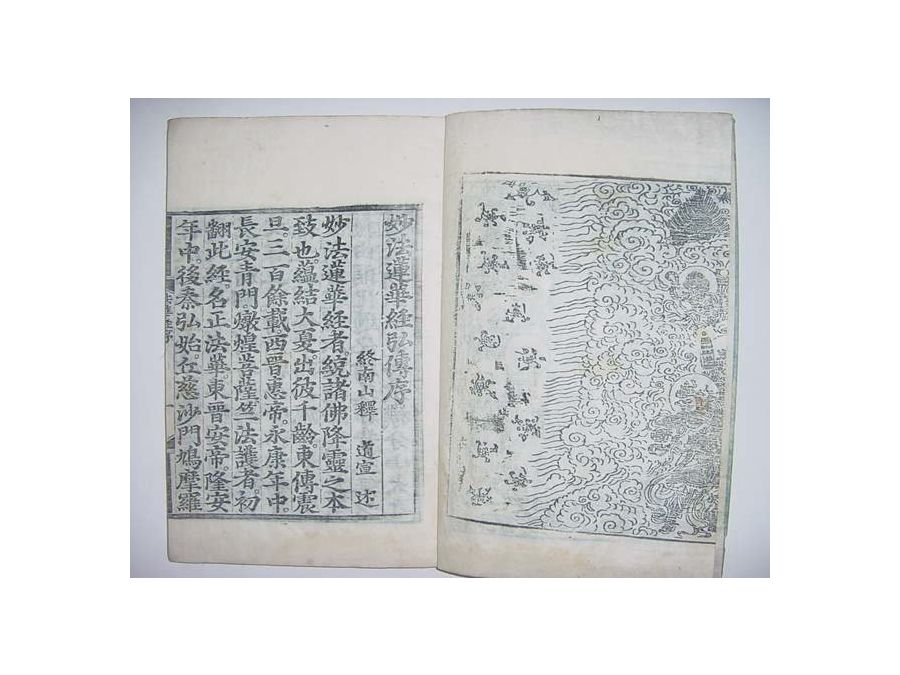 妙法蓮華經弘傳序
終南山釋 道宣 述
妙法蓮華經者。統諸佛降靈之本
致也蘊結大夏。出彼千齡。東傳震
旦。三百餘載西晉惠帝。永康年中。
長安青門。燉煌菩薩竺法護者初
翻此經名正法華東晉安帝隆安
年中。後秦弘始。龜慈沙門鳩摩羅